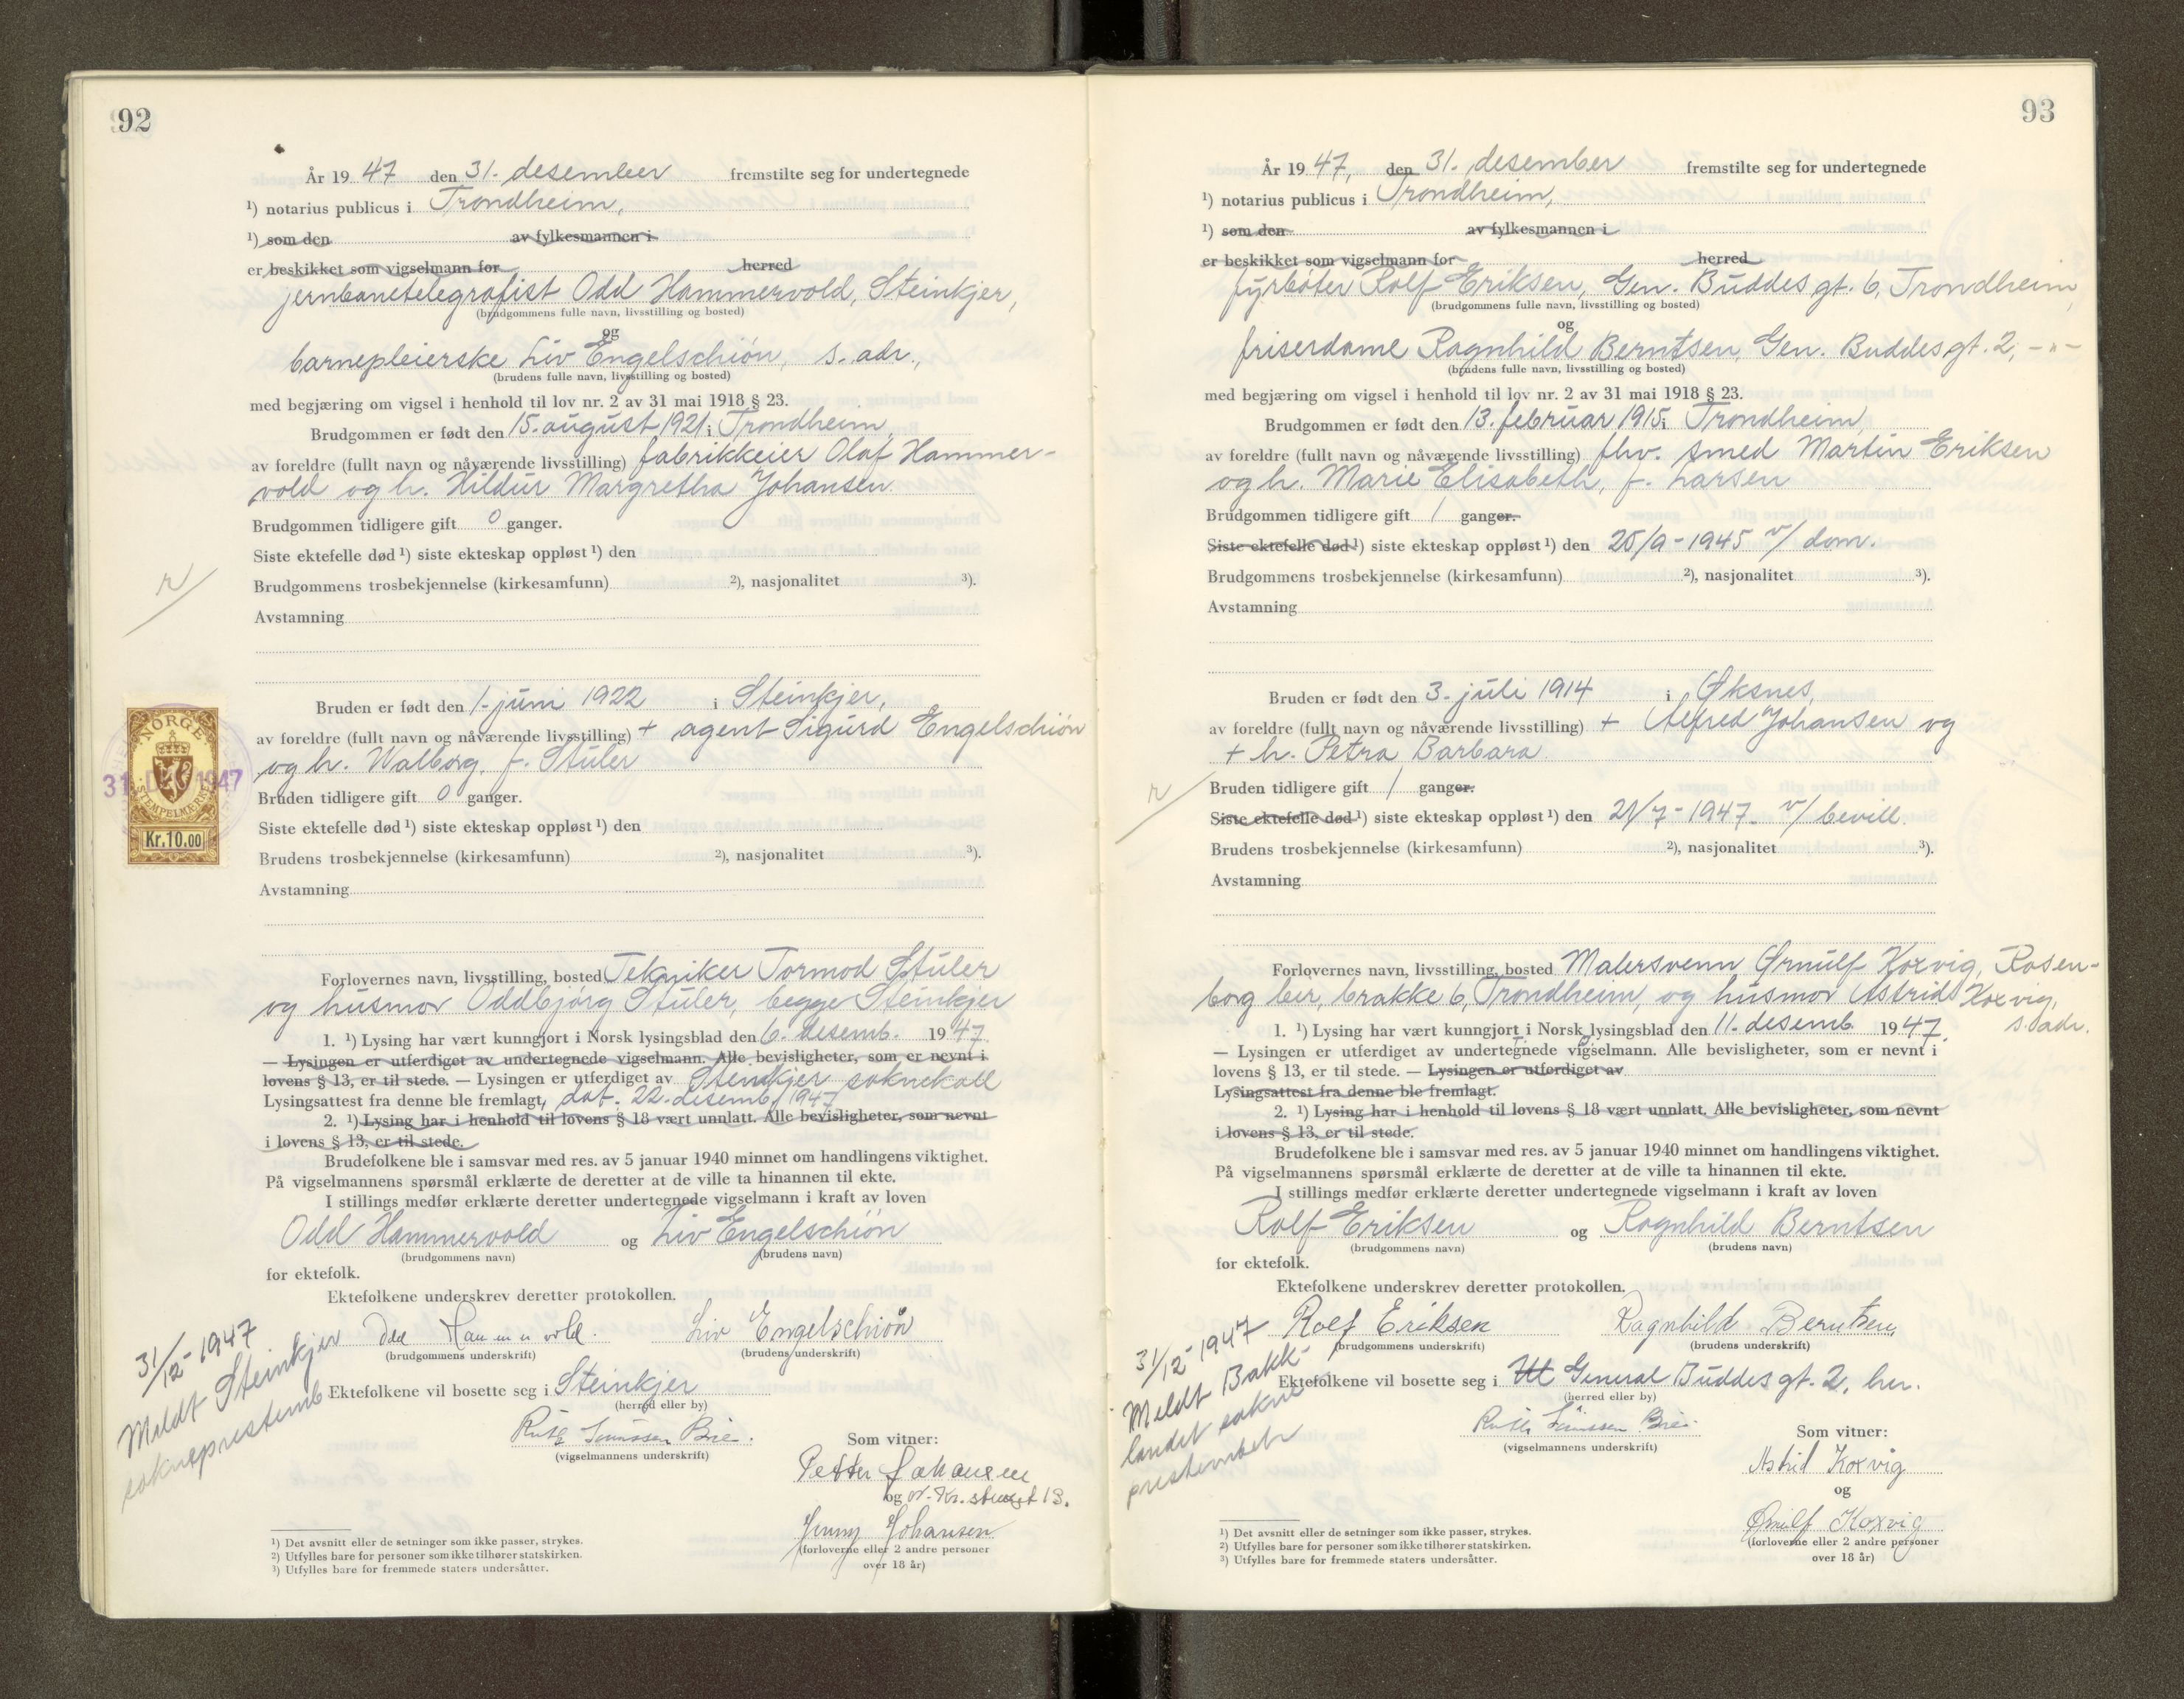 92
År 1947 den 31. desember fremstilte seg for undertegnede
¹) notarius publicus i Trondheim,
¹) som den av fylkesmannen i
er beskikket som vigselmann for herred
jernbanetelegrafist Odd Hammervold, Steinkjer,
(brudgommens fulle navn, livsstilling og bosted)
og
barnepleierske Liv Engelschiøn, s. adr.,
(brudens fulle navn, livsstilling og bosted)
med begjæring om vigsel i henhold til lov nr. 2 av 31 mai 1918 § 23.
Brudgommen er født den 15. august 1921 i Trondheim,
av foreldre (fullt navn og nåværende livsstilling) fabrikkeier Olaf Hammer-
vold og h. Hildur Margretha Johansen.
Brudgommen tidligere gift 0 ganger.
Siste ektefelle død ¹) siste ekteskap oppløst ¹) den
Brudgommens trosbekjennelse (kirkesamfunn) ²), nasjonalitet ³).
Avstamning
Bruden er født den 1. juni 1922 i Steinkjer,
av foreldre (fullt navn og nåværende livsstilling) + agent Sigurd Engelschiøn
og h. Walborg, f. Stuler
NORGE
STEMPELMERKE
Kr.10.00
31. DES. 1947
Bruden tidligere gift 0 ganger.
Siste ektefelle død ¹) siste ekteskap oppløst ¹) den
Brudens trosbekjennelse (kirkesamfunn) ²), nasjonalitet ³).
Avstamning
Forlovernes navn, livsstilling, bosted Tekniker Tormod Stuler
og husmor Oddbjørg Stuler, begge Steinkjer
1. ¹) Lysing har vært kunngjort i Norsk lysingsblad den 6. desemb. 1947
— Lysingen er utferdiget av undertegnede vigselmann. Alle bevisligheter, som er nevnt i
lovens § 13, er til stede. — Lysingen er utferdiget av Steinkjer soknekall
Lysingsattest fra denne ble fremlagt, dat. 22. desemb. 1947
2. ¹) Lysing har i henhold til lovens § 18 vært unnlatt. Alle bevisligheter, som nevnt
i lovens § 13, er til stede.
Brudefolkene ble i samsvar med res. av 5 januar 1940 minnet om handlingens viktighet.
På vigselmannens spørsmål erklærte de deretter at de ville ta hinannen til ekte.
I stillings medfør erklærte deretter undertegnede vigselmann i kraft av loven
Odd Hammervold og Liv Engelschiøn
(brudgommens navn) (brudens navn)
for ektefolk.
Ektefolkene underskrev deretter protokollen.
Odd Hammervold. Liv Engelschiøn
(brudgommens underskrift) (brudens underskrift)
31/12-1947
Meldt Steinkjer
sokneprestemb.
Ektefolkene vil bosette seg i Steinkjer
(herred eller by)
(vigselmannens underskrift)
Som vitner:
Petter Johansen
og
Jenny Johansen
(forloverne eller 2 andre personer
over 18 år)
¹) Det avsnitt eller de setninger som ikke passer, strykes.
²) Utfylles bare for personer som ikke tilhører statskirken.
³) Utfylles bare for fremmede staters undersåtter.
93
År 1947, den 31. desember fremstilte seg for undertegnede
¹) notarius publicus i Trondheim,
¹) som den av fylkesmannen i
er beskikket som vigselmann for herred
fyrbøter Rolf Eriksen, Gen. Buddes gt. 6, Trondheim,
(brudgommens fulle navn, livsstilling og bosted)
og
friserdame Ragnhild Berntsen, Gen. Buddes gt. 2, -"-
(brudens fulle navn, livsstilling og bosted)
med begjæring om vigsel i henhold til lov nr. 2 av 31 mai 1918 § 23.
Brudgommen er født den 13. februar 1915 i Trondheim,
av foreldre (fullt navn og nåværende livsstilling) fhv. smed Martin Eriksen
og h. Marie Elisabeth, f. Larsen
Brudgommen tidligere gift 1 ganger.
Siste ektefelle død ¹) siste ekteskap oppløst ¹) den 25/9-1945 v/ dom.
Brudgommens trosbekjennelse (kirkesamfunn) ²), nasjonalitet ³).
Avstamning
Bruden er født den 3. juli 1914 i Øksnes,
av foreldre (fullt navn og nåværende livsstilling) + Alfred Johansen og
+ h. Petra Barbara
Bruden tidligere gift 1 ganger.
Siste ektefelle død ¹) siste ekteskap oppløst ¹) den 21/7-1947. v/ bevill.
Brudens trosbekjennelse (kirkesamfunn) ²), nasjonalitet ³).
Avstamning
Forlovernes navn, livsstilling, bosted Malersvenn Ørnulf Koxvig, Rosen-
borg leir, brakke 6, Trondheim, og husmor Astrid Koxvig,
s. adr.
1. ¹) Lysing har vært kunngjort i Norsk lysingsblad den 11. desemb 1947.
— Lysingen er utferdiget av undertegnede vigselmann. Alle bevisligheter, som er nevnt i
lovens § 13, er til stede. — Lysingen er utferdiget av
Lysingsattest fra denne ble fremlagt.
2. ¹) Lysing har i henhold til lovens § 18 vært unnlatt. Alle bevisligheter, som nevnt
i lovens § 13, er til stede.
Brudefolkene ble i samsvar med res. av 5 januar 1940 minnet om handlingens viktighet.
På vigselmannens spørsmål erklærte de deretter at de ville ta hinannen til ekte.
I stillings medfør erklærte deretter undertegnede vigselmann i kraft av loven
Rolf Eriksen og Ragnhild Berntsen
(brudgommens navn) (brudens navn)
for ektefolk.
Ektefolkene underskrev deretter protokollen.
Rolf Eriksen Ragnhild Berntsen
(brudgommens underskrift) (brudens underskrift)
31/12-1947
Meldt Bakk-
landet sokne
prestembete
Ektefolkene vil bosette seg i General Buddes gt. 2, her.
(herred eller by)
(vigselmannens underskrift)
Som vitner:
Astrid Koxvig
og
Ørnulf Koxvig
(forloverne eller 2 andre personer
over 18 år)
¹) Det avsnitt eller de setninger som ikke passer, strykes.
²) Utfylles bare for personer som ikke tilhører statskirken.
³) Utfylles bare for fremmede staters undersåtter.